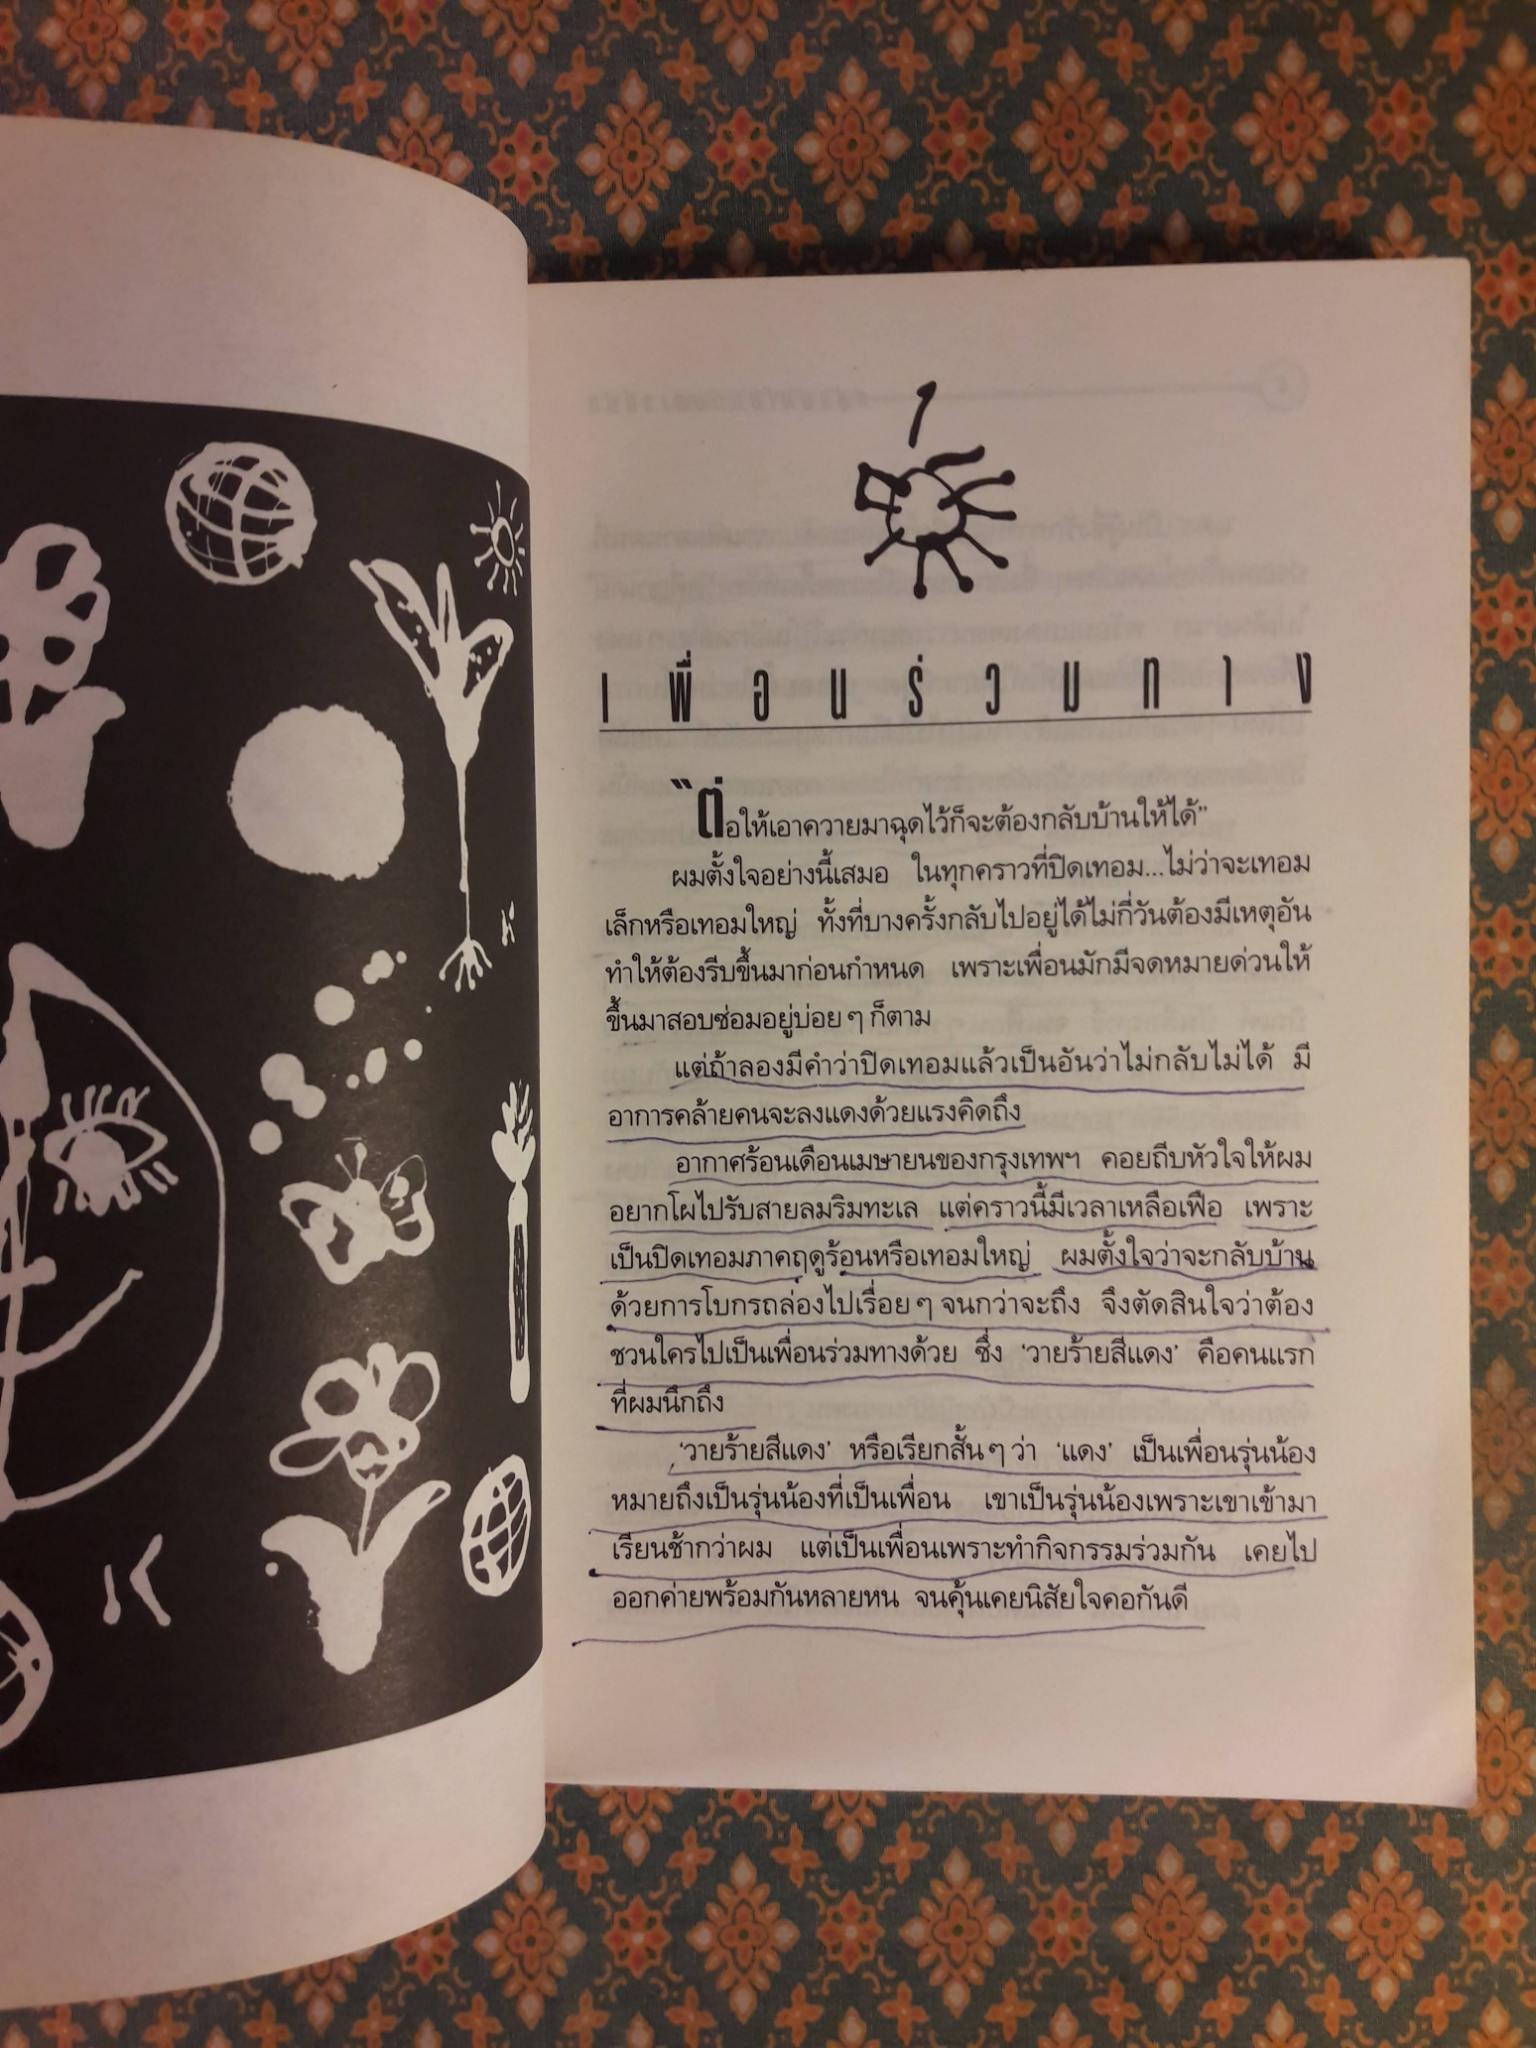 1
เพื่อนร่วมทาง
"ต่อให้เอาควายมาฉุดไว้ก็จะต้องกลับบ้านให้ได้"
ผมตั้งใจอย่างนี้เสมอ ในทุกคราวที่ปิดเทอม...ไม่ว่าจะเทอม
เล็กหรือเทอมใหญ่ ทั้งที่บางครั้งกลับไปอยู่ได้ไม่กี่วันต้องมีเหตุอัน
ทำให้ต้องรีบขึ้นมาก่อนกำหนด เพราะเพื่อนมักมีจดหมายด่วนให้
ขึ้นมาสอบซ่อมอยู่บ่อย ๆ ก็ตาม
แต่ถ้าลองมีคำว่าปิดเทอมแล้วเป็นอันว่าไม่กลับไม่ได้ มี
อาการคล้ายคนจะลงแดงด้วยแรงคิดถึง
อากาศร้อนเดือนเมษายนของกรุงเทพฯ คอยถีบหัวใจให้ผม
อยากโผไปรับสายลมริมทะเล แต่คราวนี้มีเวลาเหลือเฟือ เพราะ
เป็นปิดเทอมภาคฤดูร้อนหรือเทอมใหญ่ ผมตั้งใจว่าจะกลับบ้าน
ด้วยการโบกรถล่องไปเรื่อย ๆ จนกว่าจะถึง จึงตัดสินใจว่าต้อง
ชวนใครไปเป็นเพื่อนร่วมทางด้วย ซึ่ง 'วายร้ายสีแดง' คือคนแรก
ที่ผมนึกถึง
'วายร้ายสีแดง' หรือเรียกสั้น ๆ ว่า 'แดง' เป็นเพื่อนรุ่นน้อง
หมายถึงเป็นรุ่นน้องที่เป็นเพื่อน เขาเป็นรุ่นน้องเพราะเขาเข้ามา
เรียนช้ากว่าผม แต่เป็นเพื่อนเพราะทำกิจกรรมร่วมกัน เคยไป
ออกค่ายพร้อมกันหลายหน จนคุ้นเคยนิสัยใจคอกันดี